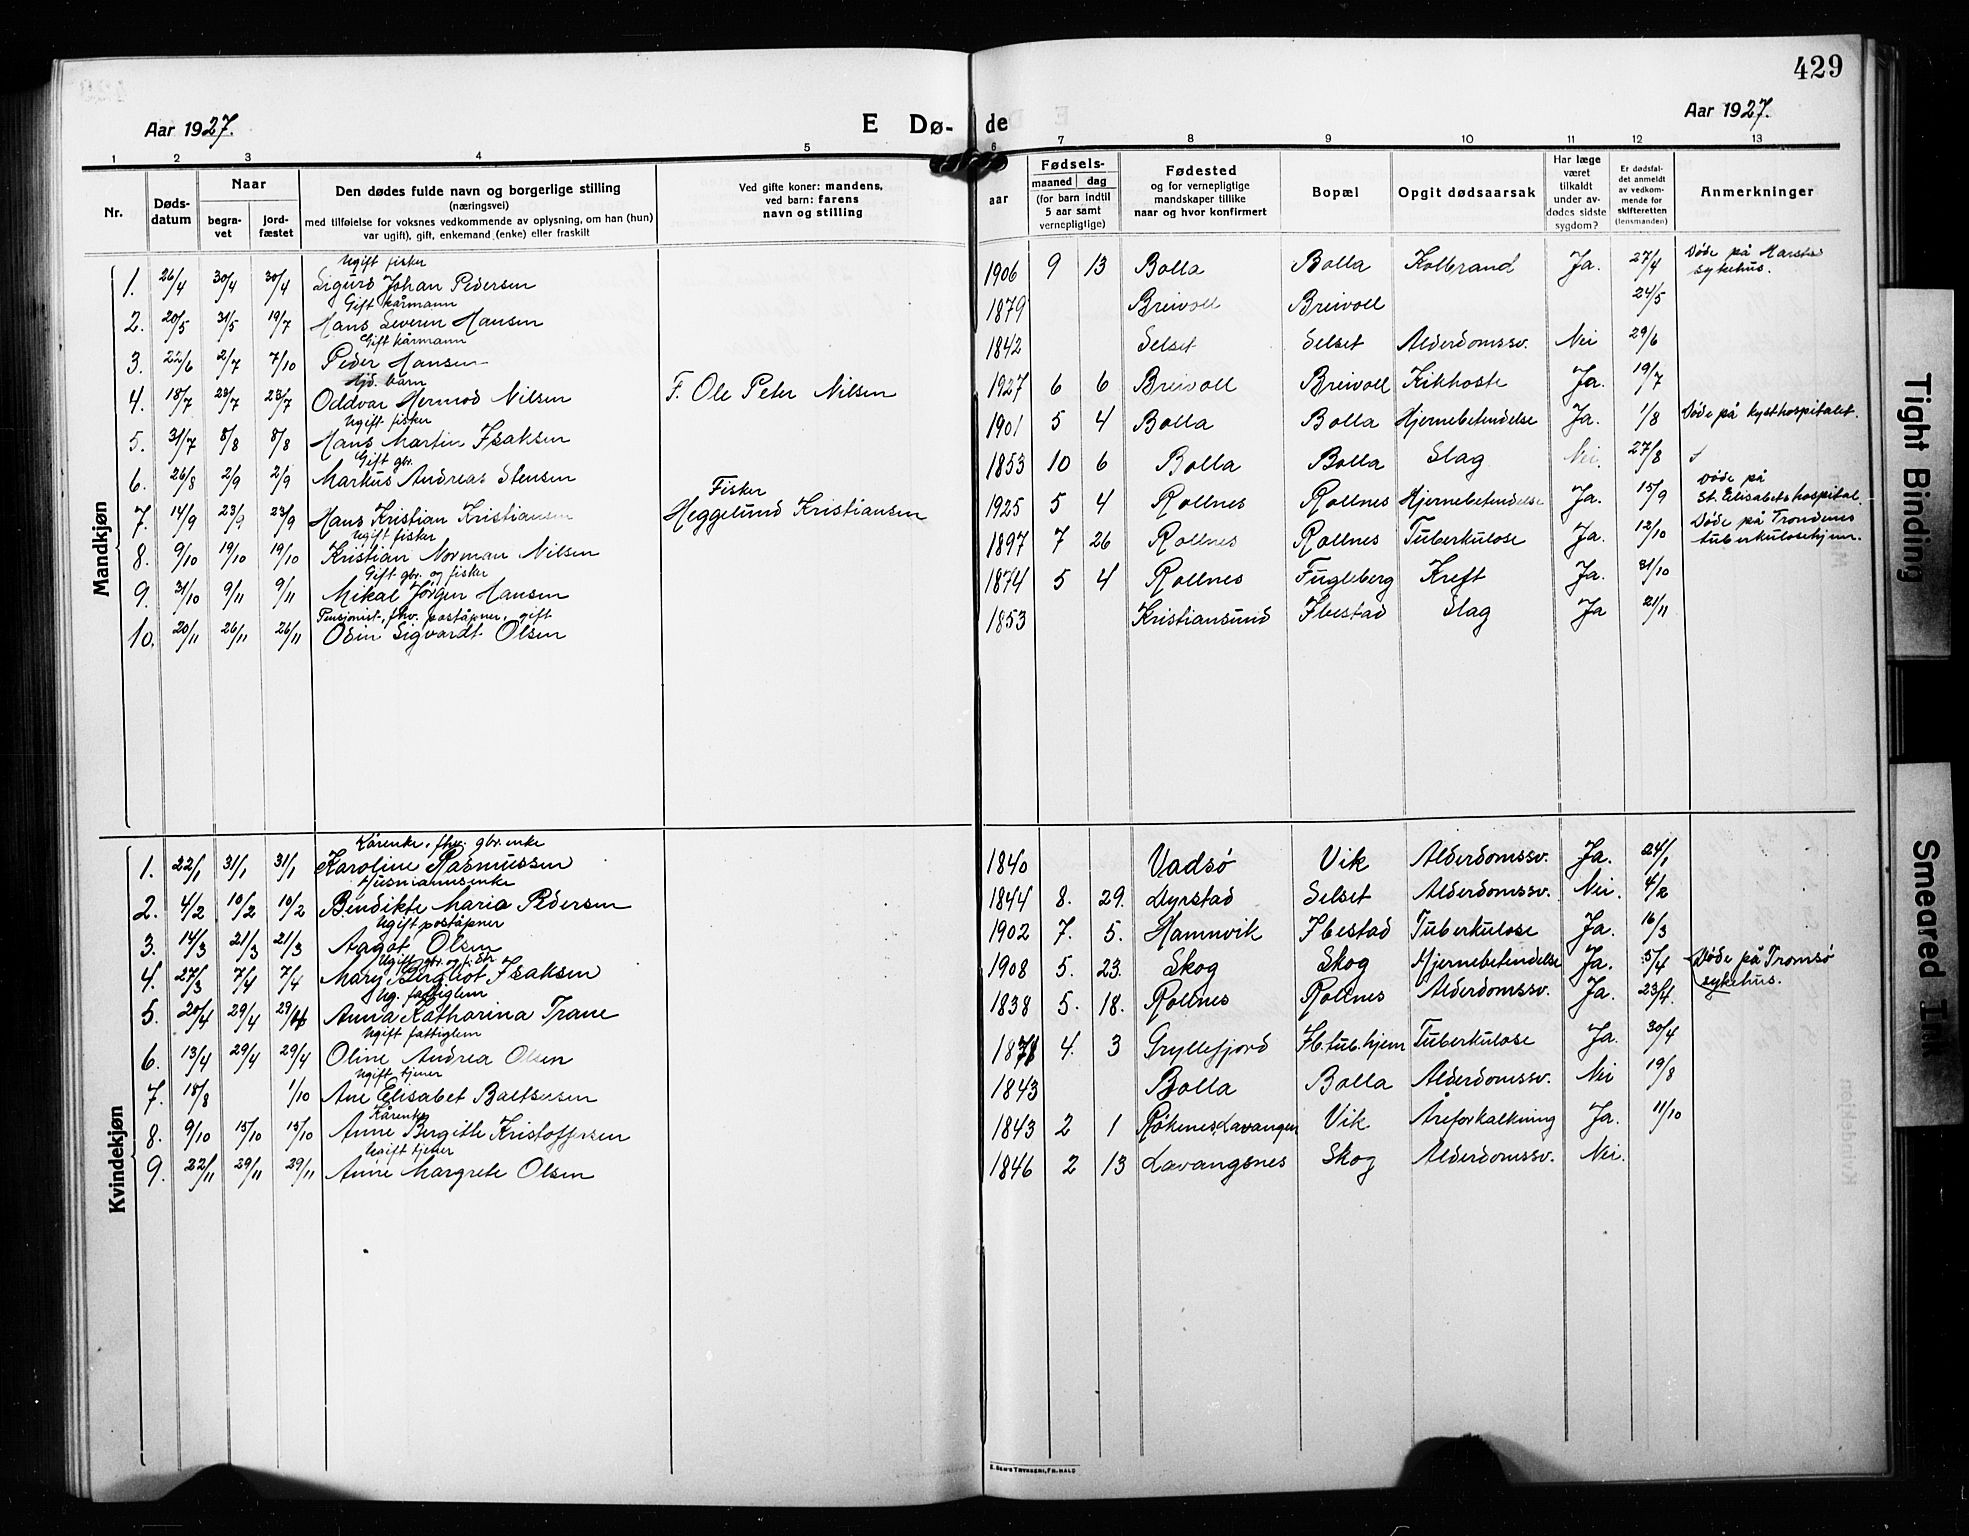 429
Aar 1927.
E Dø-
de
Aar 1927.
1 2 3 4 5 6 7 8 9 10 11 12 13
Nr.
Døds-
datum
Naar
begra-
vet
jord-
fæstet
Den dødes fulde navn og borgerlige stilling
(næringsvei)
med tilføielse for voksnes vedkommende av oplysning, om han (hun)
var ugift), gift, enkemand (enke) eller fraskilt
Ved gifte koner: mandens,
ved barn: farens
navn og stilling
aar
Fødsels-
maaned dag
(for barn indtil
5 aar samt
vernepligtige)
Fødested
og for vernepligtige
mandskaper tillike
naar og hvor konfirmert
Bopæl
Opgit dødsaarsak
Har læge
været
tilkaldt
under av-
dødes sidste
sygdom?
Er dødsfal-
det anmeldt
av vedkom-
mende for
skifteretten
(lensmanden)
Anmerkninger
Mandkjøn
Ugift fisker
1. 26/4 30/4 30/4 Sigurd Johan Pedersen 1906 9 13 Bolla Bolla Kolbrand Ja. 27/4 Døde på Harstad sykehus.
Gift kårmann
2. 20/5 31/5 19/7 Hans Severin Hansen 1879 Breivoll Breivoll 24/5
Gift kårmann
3. 22/6 2/7 7/10 Peder Hansen 1842 Selset Selset Alderdomssv. Nei 29/6
Gjd. barn
4. 18/7 23/7 23/7 Oddvar Hermod Nilsen F. Ole Peter Nilsen 1927 6 6 Breivoll Breivoll Kikhoste Ja. 19/7
Ugift fisker
5. 31/7 8/8 8/8 Hans Martin Isaksen 1901 5 4 Bolla Bolla Hjernebetendelse Ja. 1/8 Døde på kysthospitalet.
Gift gbr.
6. 26/8 2/9 2/9 Markus Andreas Stensen 1853 10 6 Bolla Bolla Slag Nei. 27/8
Fisker
7. 14/9 23/9 23/9 Hans Kristian Kristiansen Heggelund Kristiansen 1925 5 4 Rollnes Rollnes Hjernebetendelse Ja. 15/9 Døde på St. Elisabets hospital
Ugift fisker
8. 9/10 19/10 19/10 Kristian Norman Nilsen 1897 7 26 Rollnes Rollnes Tuberkulose Ja. 12/10 Døde på Trondenes tuberkulosehjem.
Gift gbr. og fisker
9. 31/10 9/11 9/11 Mikal Jørgen Hansen 1874 5 4 Rollnes Fugleberg Kreft Ja. 31/10
Pensjonist, fhv. poståpner, gift
10. 20/11 26/11 26/11 Odin Sigvardt Olsen 1853 Kristiansund Ibestad Slag Ja 21/11
Kvindekjøn
Kårenke, fhv. gbr. enke
1. 22/1 31/1 31/1 Karoline Rasmussen 1840 Vadsø Vik Alderdomssv. Ja. 24/1
Husmannsenke
2. 4/2 10/2 10/2 Bendikte Maria Pedersen 1844 8. 29. Dyrstad Selset Alderdomssv. Nei. 4/2
Ugift poståpner
3. 14/3 21/3 21/3 Aagot Olsen 1902 7. 5. Hamnvik Ibestad Tuberkulose Ja. 16/3
Ugift
4. 27/3 7/4 7/4 Mary Bergliot Isaksen 1908 5. 23. Skog Skog Hjernebetendelse Ja. 5/4 Døde på Tromsø sykehus.
Ug. fattiglem
5. 20/4 29/4 29/4 Anna Katharina Trane 1838 5. 18. Rollnes Rollnes Alderdomssv. Ja. 23/4.
Ugift fattiglem
6. 13/4 29/4 29/4 Oline Andrea Olsen 1871 4. 3 Gryllefjord Ib. tub. hjem Tuberkulose Ja. 30/4
Ugift tjener
7. 18/8 1/10 Ane Elisabet Baltsersen 1843 Bolla Bolla Alderdomssv. Nei 19/8
Kårenke
8. 9/10 15/10 15/10 Anne Bergitte Kristoffersen 1843 2 1 Røkenes, Lavangen Vik Åreforkalkning Ja. 11/10
Ugift tjener
9. 22/11 29/11 29/11 Anne Margrete Olsen 1846 2 13 Lavangsnes Skog Alderdomssv. Nei.
E. SEM'S TRYKKERI, FR.HALD
Tight Binding
Smeared Ink